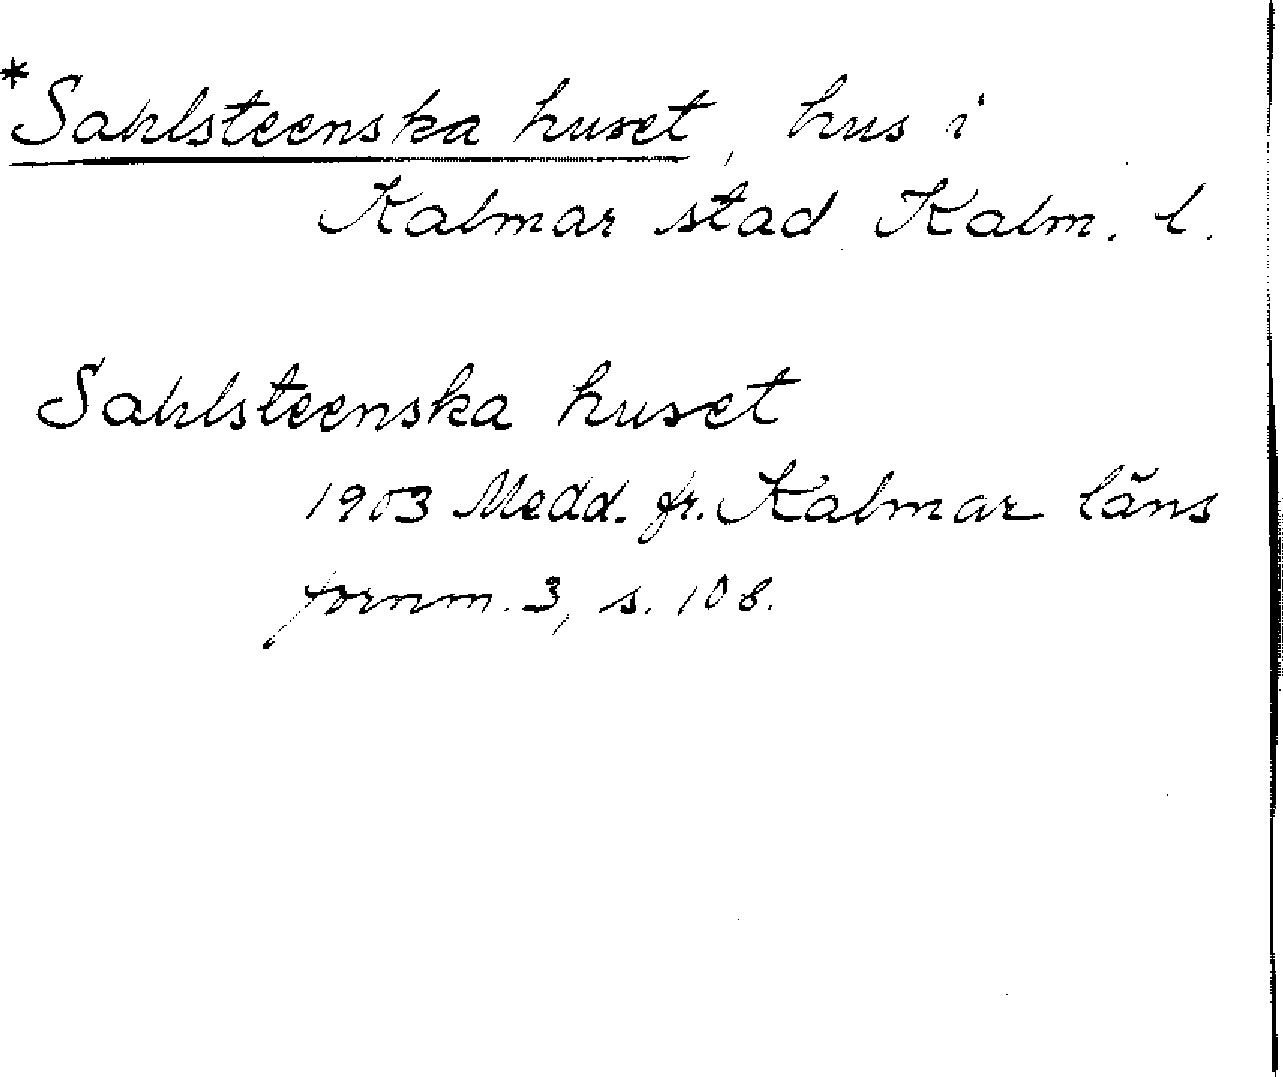 *Sahlsteenska huset, hus i
Kalmar stad Kalm. l.
Sahlsteenska huset
1903 Medd. fr. Kalmar läns
fornm. 3, s. 108.